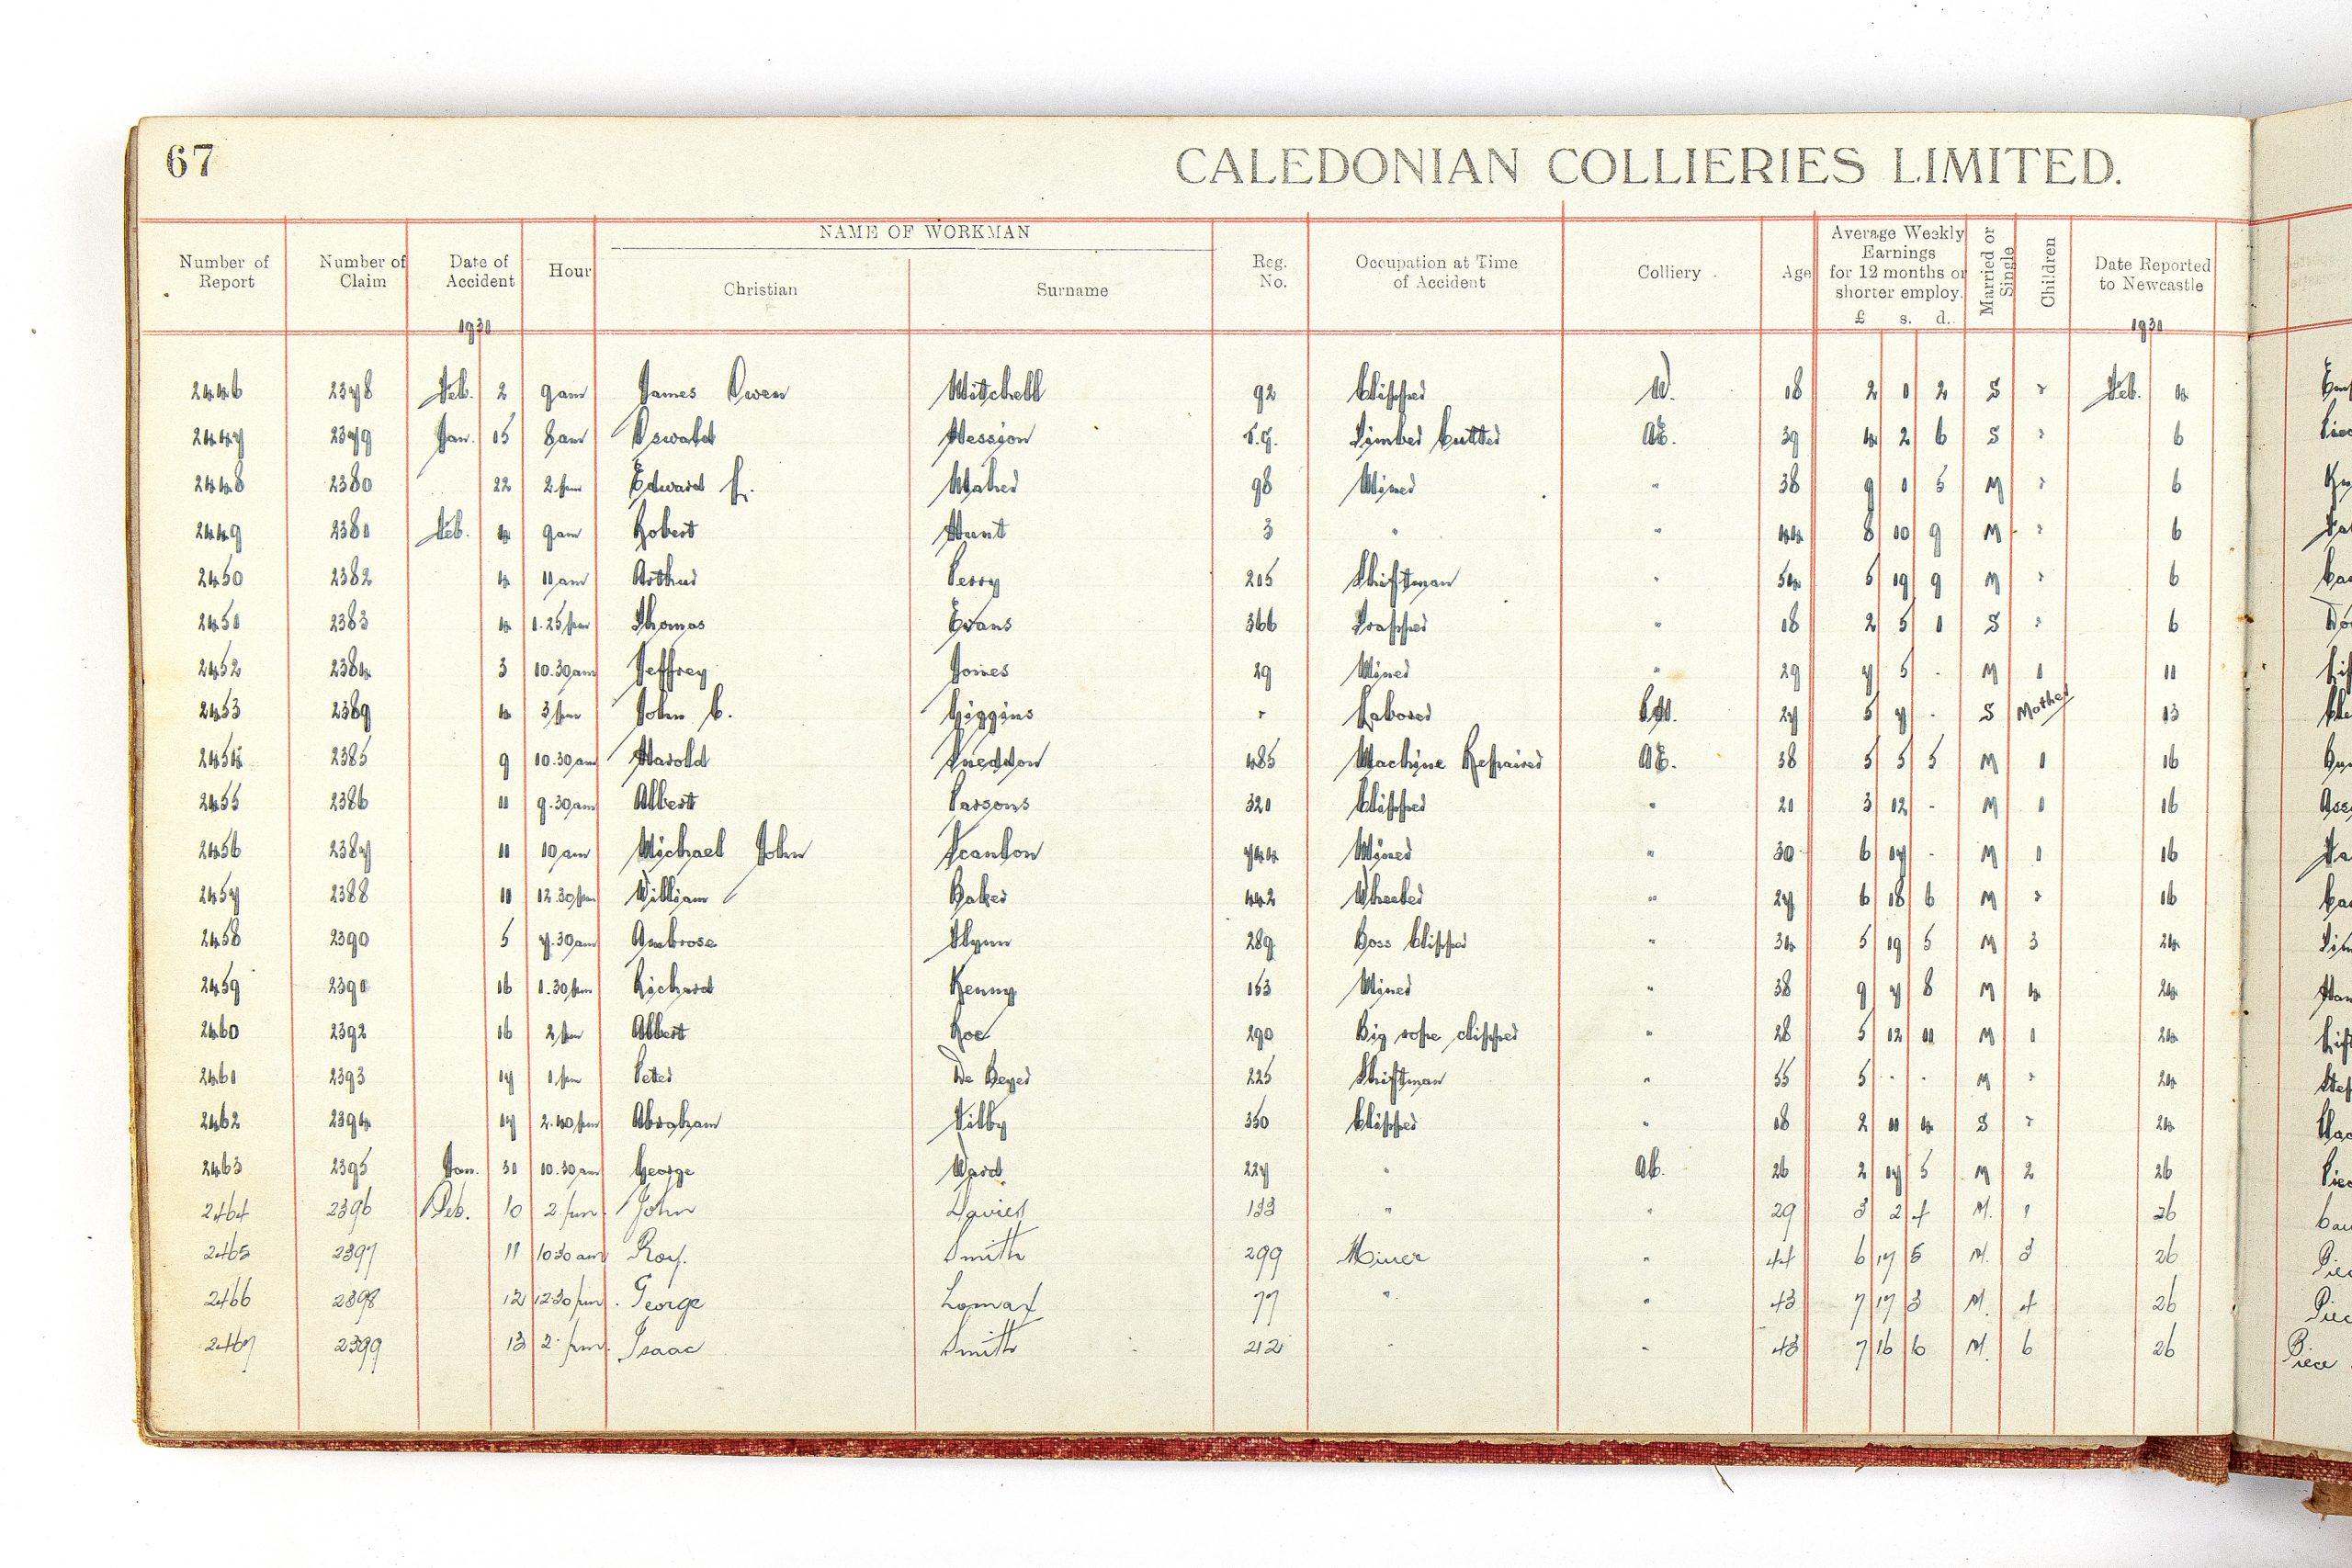 67
CALEDONIAN COLLIERIES LIMITED.
Number of Report Number of Claim Date of Accident Hour NAME OF WORKMAN Christian Surname Reg. No. Occupation at Time of Accident Colliery Age Average Weekly Earnings for 12 months or shorter employ. £ s. d. Married or Single Children Date Reported to Newcastle
1931 1931
2446 2378 Feb. 2 9am James Owen Mitchell 92 Clipper W. 18 2 1 2 S - Feb. 4
2447 2379 Jan. 15 8am Oswald Hession Timber Cutter AE. 39 4 2 6 S - 6
2448 2380 22 2pm Edward L. Maher 98 Miner " 38 9 1 5 M - 6
2449 2381 Feb. 4 9am Robert Hunt 3 " " 44 8 10 9 M - 6
2450 2382 4 11am Arthur Perry 215 Shiftman " 54 5 19 9 M - 6
2451 2383 4 1.25pm Thomas Evans 366 Trapper " 18 2 5 1 S - 6
2452 2384 3 10.30am Jeffrey Jones 29 Miner " 29 7 5 - M 1 11
2453 2389 4 3pm John C. Higgins - Laborer 27 5 7 - S Mother 13
2454 2385 9 10.30am Harold Sneddon 485 Machine Repairer AE. 38 5 5 5 M 1 16
2455 2386 11 9.30am Albert Parsons 321 Clipper " 21 3 12 - M 1 16
2456 2387 11 10am Michael John Scanlon 744 Miner " 30 6 17 - M 1 16
2457 2388 11 12.30pm William Baker 442 Wheeler " 27 6 18 6 M - 16
2458 2390 5 7.30am Ambrose Flynn 289 Boss Clipper " 34 5 19 5 M 3 24
2459 2391 16 1.30pm Richard Kenny 153 Miner " 38 9 7 8 M 4 24
2460 2392 16 2pm Albert Roe 290 Big rope clipper " 28 5 12 11 M 1 24
2461 2393 17 1pm Peter De Beyer 225 Shiftman " 55 5 - - M - 24
2462 2394 17 2.40pm Abraham Tilby 350 Clipper " 18 2 11 4 S - 24
2463 2395 Jan. 31 10.30am George Ward 227 " AC. 26 2 17 5 M 2 26
2464 2396 Feb. 10 2pm John Davies 133 " " 29 3 2 4 M. 1 26
2465 2397 11 10.30am Roy. Smith 299 Miner " 44 6 17 5 M. 3 26
2466 2398 12 12.30pm George Lomax 77 " " 43 7 17 3 M. 4 26
2467 2399 13 2pm Isaac Smith 212 " " 43 7 16 6 M. 6 26
Piece